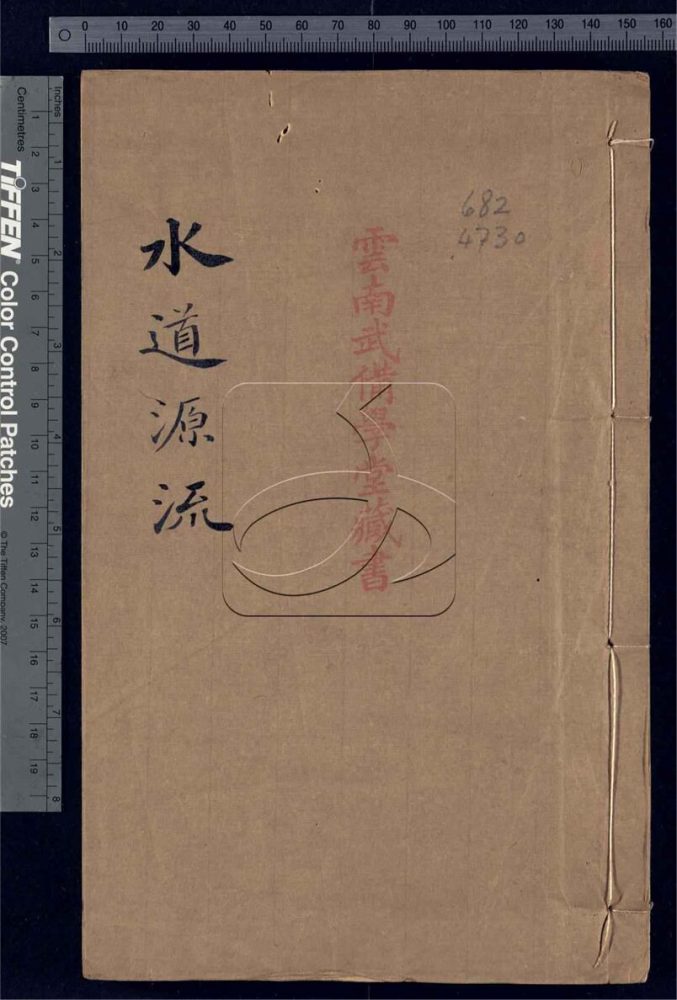 0 10 20 30 40 50 60 70 80 90 100 110 120 130 140 150 160
682
4730
雲南武備學堂藏書
水道源流
Inches
1 2 3 4 5 6 7 8
Centimetres
1 2 3 4 5 6 7 8 9 10 11 12 13 14 15 16 17 18 19
TIFFEN® Color Control Patches
© The Tiffen Company, 2007